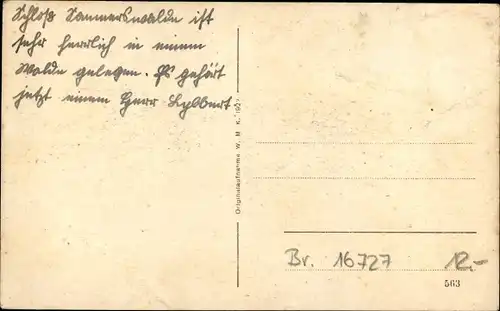 Schloß Sammerswalde ist
sehr herrlich in einem
Walde gelegen. Es gehört
jetzt einem Herr
Originalaufnahme W. M. K.
Br. 16727 12.-
563